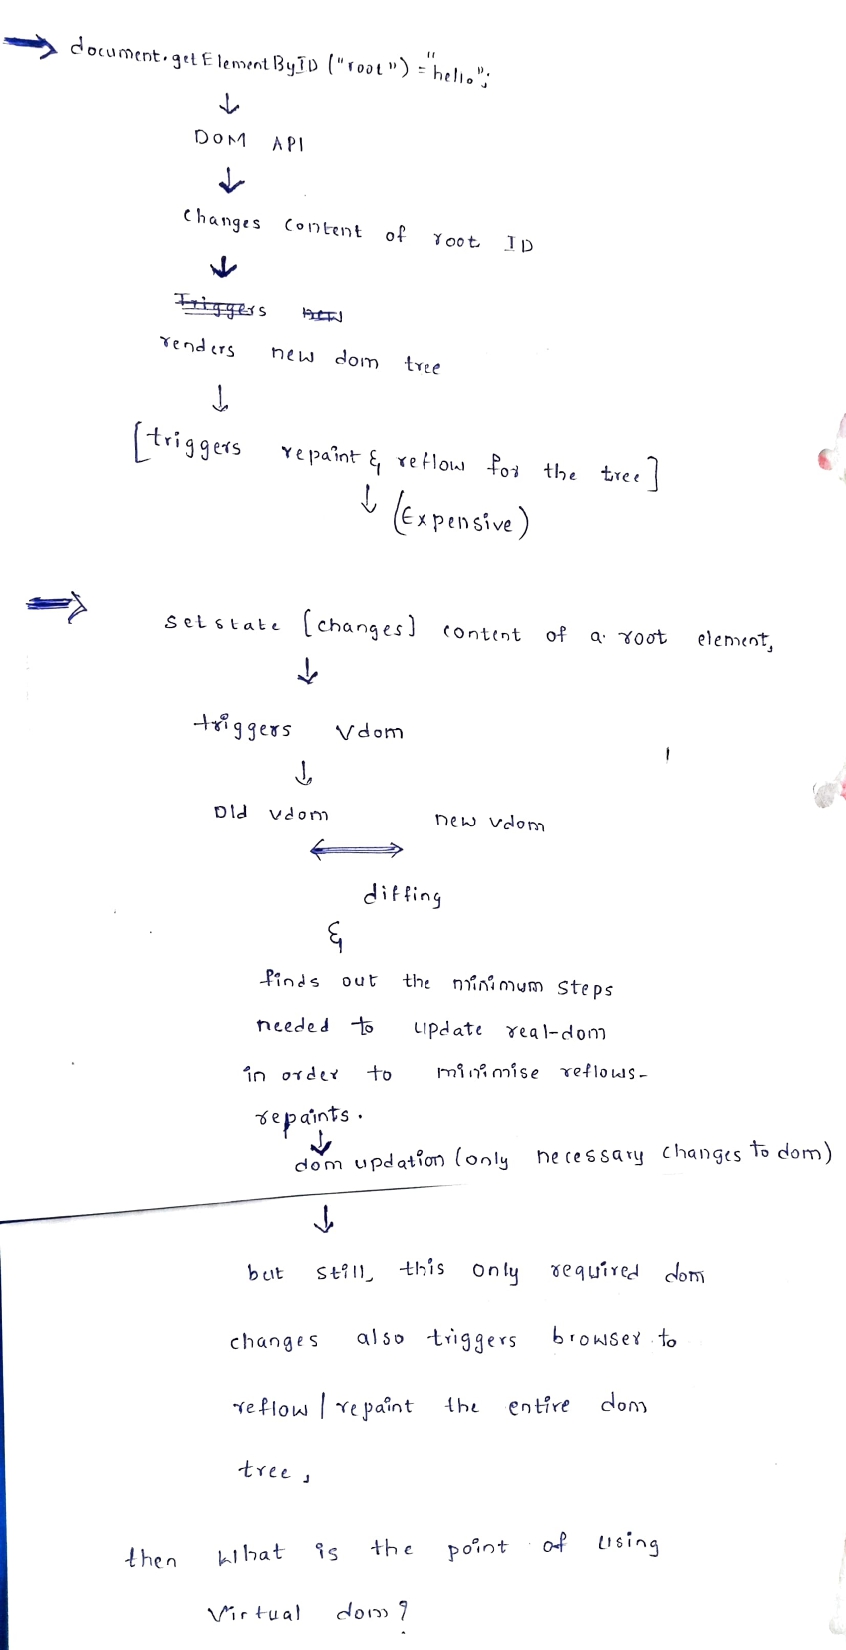 document.getElementByID ("root") = "hello";
DOM API
changes content of root ID
Triggers new
renders new dom tree
[triggers repaint & reflow for the tree]
(Expensive)
setstate [changes] content of a root element,
triggers vdom
Old vdom new vdom
diffing
&
finds out the minimum steps
needed to update real-dom
in order to minimise reflows-
repaints.
dom updation (only necessary changes to dom)
but still, this only required dom
changes also triggers browser to
reflow / repaint the entire dom
tree,
then what is the point of using
Virtual dom?